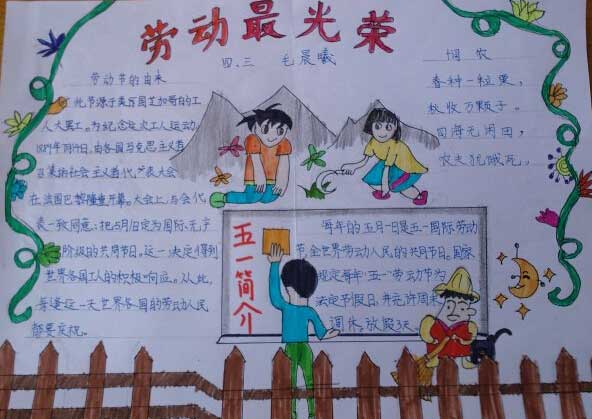 劳动最光荣
四.三 毛晨曦
劳动节的由来
此节源于美国芝加哥的工
人大罢工。为纪念这次工人运动,
1889年7月14日,由各国马克思主义者
召集的社会主义者代表大会
在法国巴黎隆重开幕。大会上,与会代
表一致同意:把5月1日定为国际无产
阶级的共同节日。这一决定得到
世界各国工人的积极响应。从此,
每逢这一天世界各国的劳动人民
都要庆祝。
悯农
春种一粒粟,
秋收万颗子。
四海无闲田,
农夫犹饿死。
五一简介
每年的五月一日是五一国际劳动
节,全世界劳动人民的共同节日。国家
规定每年“五一”劳动节为
法定节假日,并允许周末
调休,放假3天。